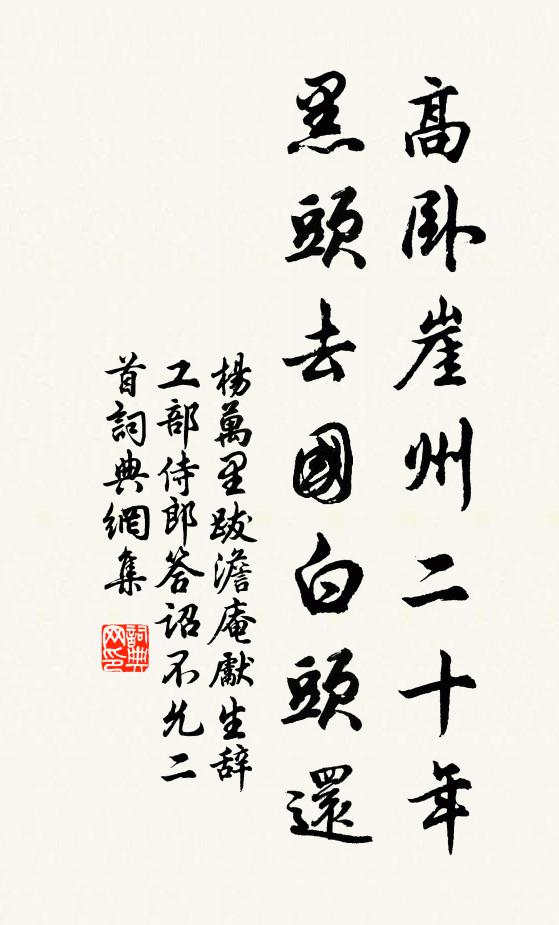 高卧崖州二十年
黑頭去國白頭還
楊萬里跋澹庵獻生辞
工部侍郎答詔不允二
首詞典網集
詞典
网印